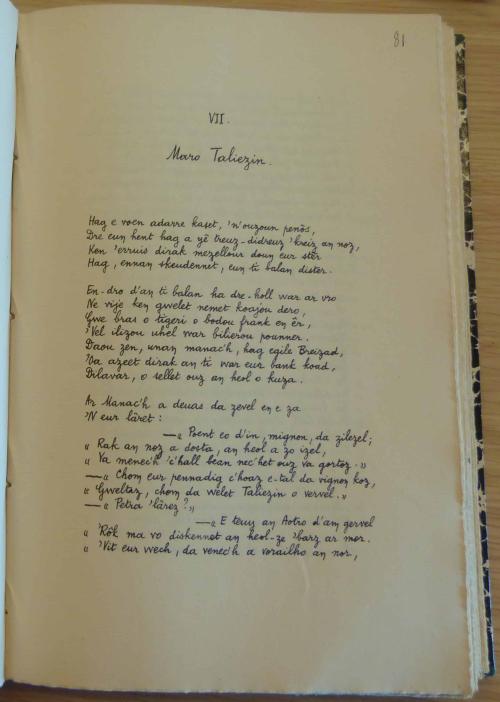 81
VII.
Maro Taliezin.
Hag e voen adarre kaset, 'n'ouzoun penôs,
Dre eun hent hag a yê treuz-didreuz 'kreiz an noz,
Ken 'erruis dirak mezellour doun eur stêr
Hag, ennan skeudennet, eun ti balan dister.
En-dro d'an ti balan ha dre-holl war ar vro
Ne vije ken gwelet nemet koajou dero,
Gwe bras o tigeri o bodou frank en êr,
'Vel ilizou uhel war bilierou pounner.
Daou zen, unan manac'h, hag egile Breizad,
'Oa azeet dirak an ti war eur bank koad,
Dilavar, o sellet ouz an heol o kuza.
Ar Manac'h a deuas da zevel en e za
'N eur lâret :
—„ Poent eo d'in, mignon, da zilezel;
„ Rak an noz a dosta, an heol a zo izel,
„ Va menec'h 'c'hall bean nec'het ouz va gortoz. »
—„ Chom eur pennadig c'hoaz e-tal da vignon koz,
„ Gweltaz, chom da welet Taliezin o vervel. »
—„ Petra 'lârez ? »
—„ E teuy an Aotro d'am gervel
„ 'Rôk ma vo diskennet an heol-ze 'barz ar mor.
„ 'Vit eur wech, da venec'h a vorailho an nor,